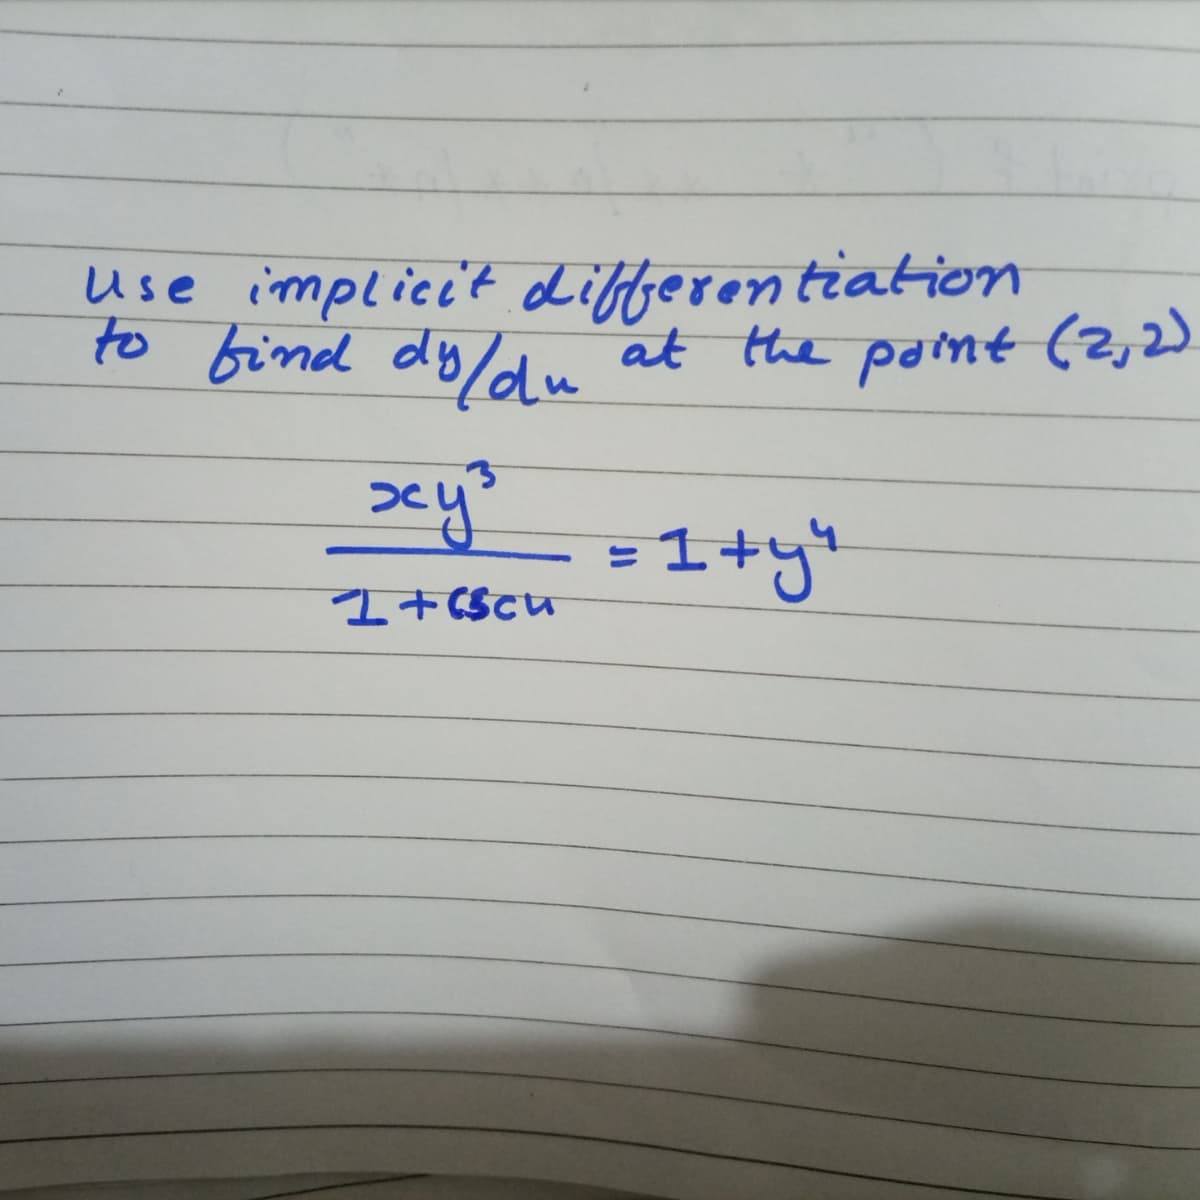 use implicit differentiation
to find dy/dx at the point (2,2)
xy³
= 1+y⁴
1+cscx